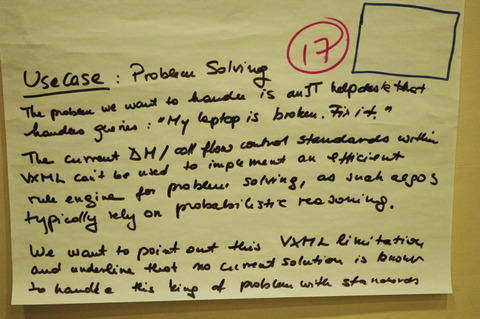 17
Use Case : Problem Solving
The problem we want to handle is an IT helpdesk that
handles queries : "My laptop is broken. Fix it."
The current DM/call flow control standards within
VXML can't be used to implement an efficient
rule engine for problem solving, as such algos
typically rely on probabilistic reasoning.
We want to point out this VXML limitation
and underline that no current solution is known
to handle this king of problem with standards